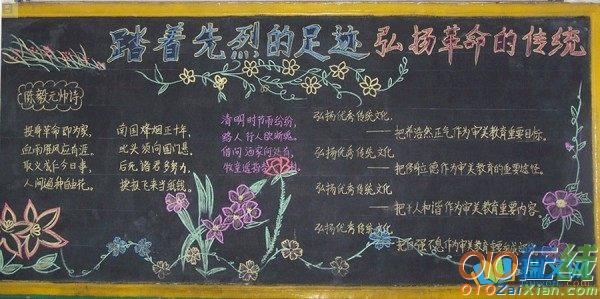 踏着先烈的足迹 弘扬革命的传统
陈毅元帅诗
投身革命即为家,
血雨腥风应有涯。
取义成仁今日事,
人间遍种自由花。
南国烽烟正十年,
此头须向国门悬。
后死诸君多努力,
捷报飞来当纸钱。
清明时节雨纷纷,
路人行人欲断魂。
借问酒家何处有,
牧童遥指
弘扬优秀传统文化,
把养浩然正气作为审美教育重要目标。
弘扬优秀传统文化
把修身立德作为审美教育的重要途径。
弘扬优秀传统文化
把人和谐作为审美教育重要内容。
弘扬优秀传统文化
把自强不息作为审美教育重要
OTOZaiXian.com